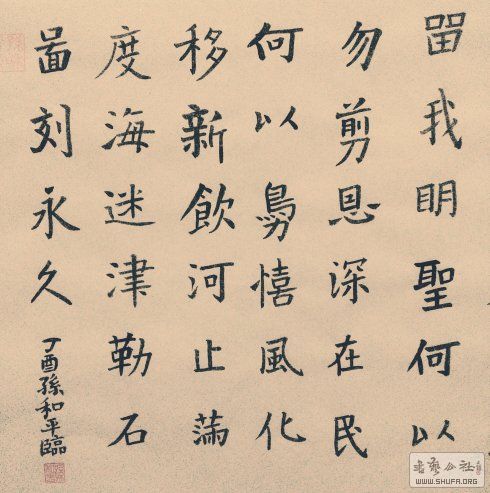 㽞我明聖何以
勿剪恩深在民
何以憘風化
移新飲河止滿
度海迷津勒石
啚刻永久
丁酉孫和平臨
书艺公社
WWW.SHUFA.ORG